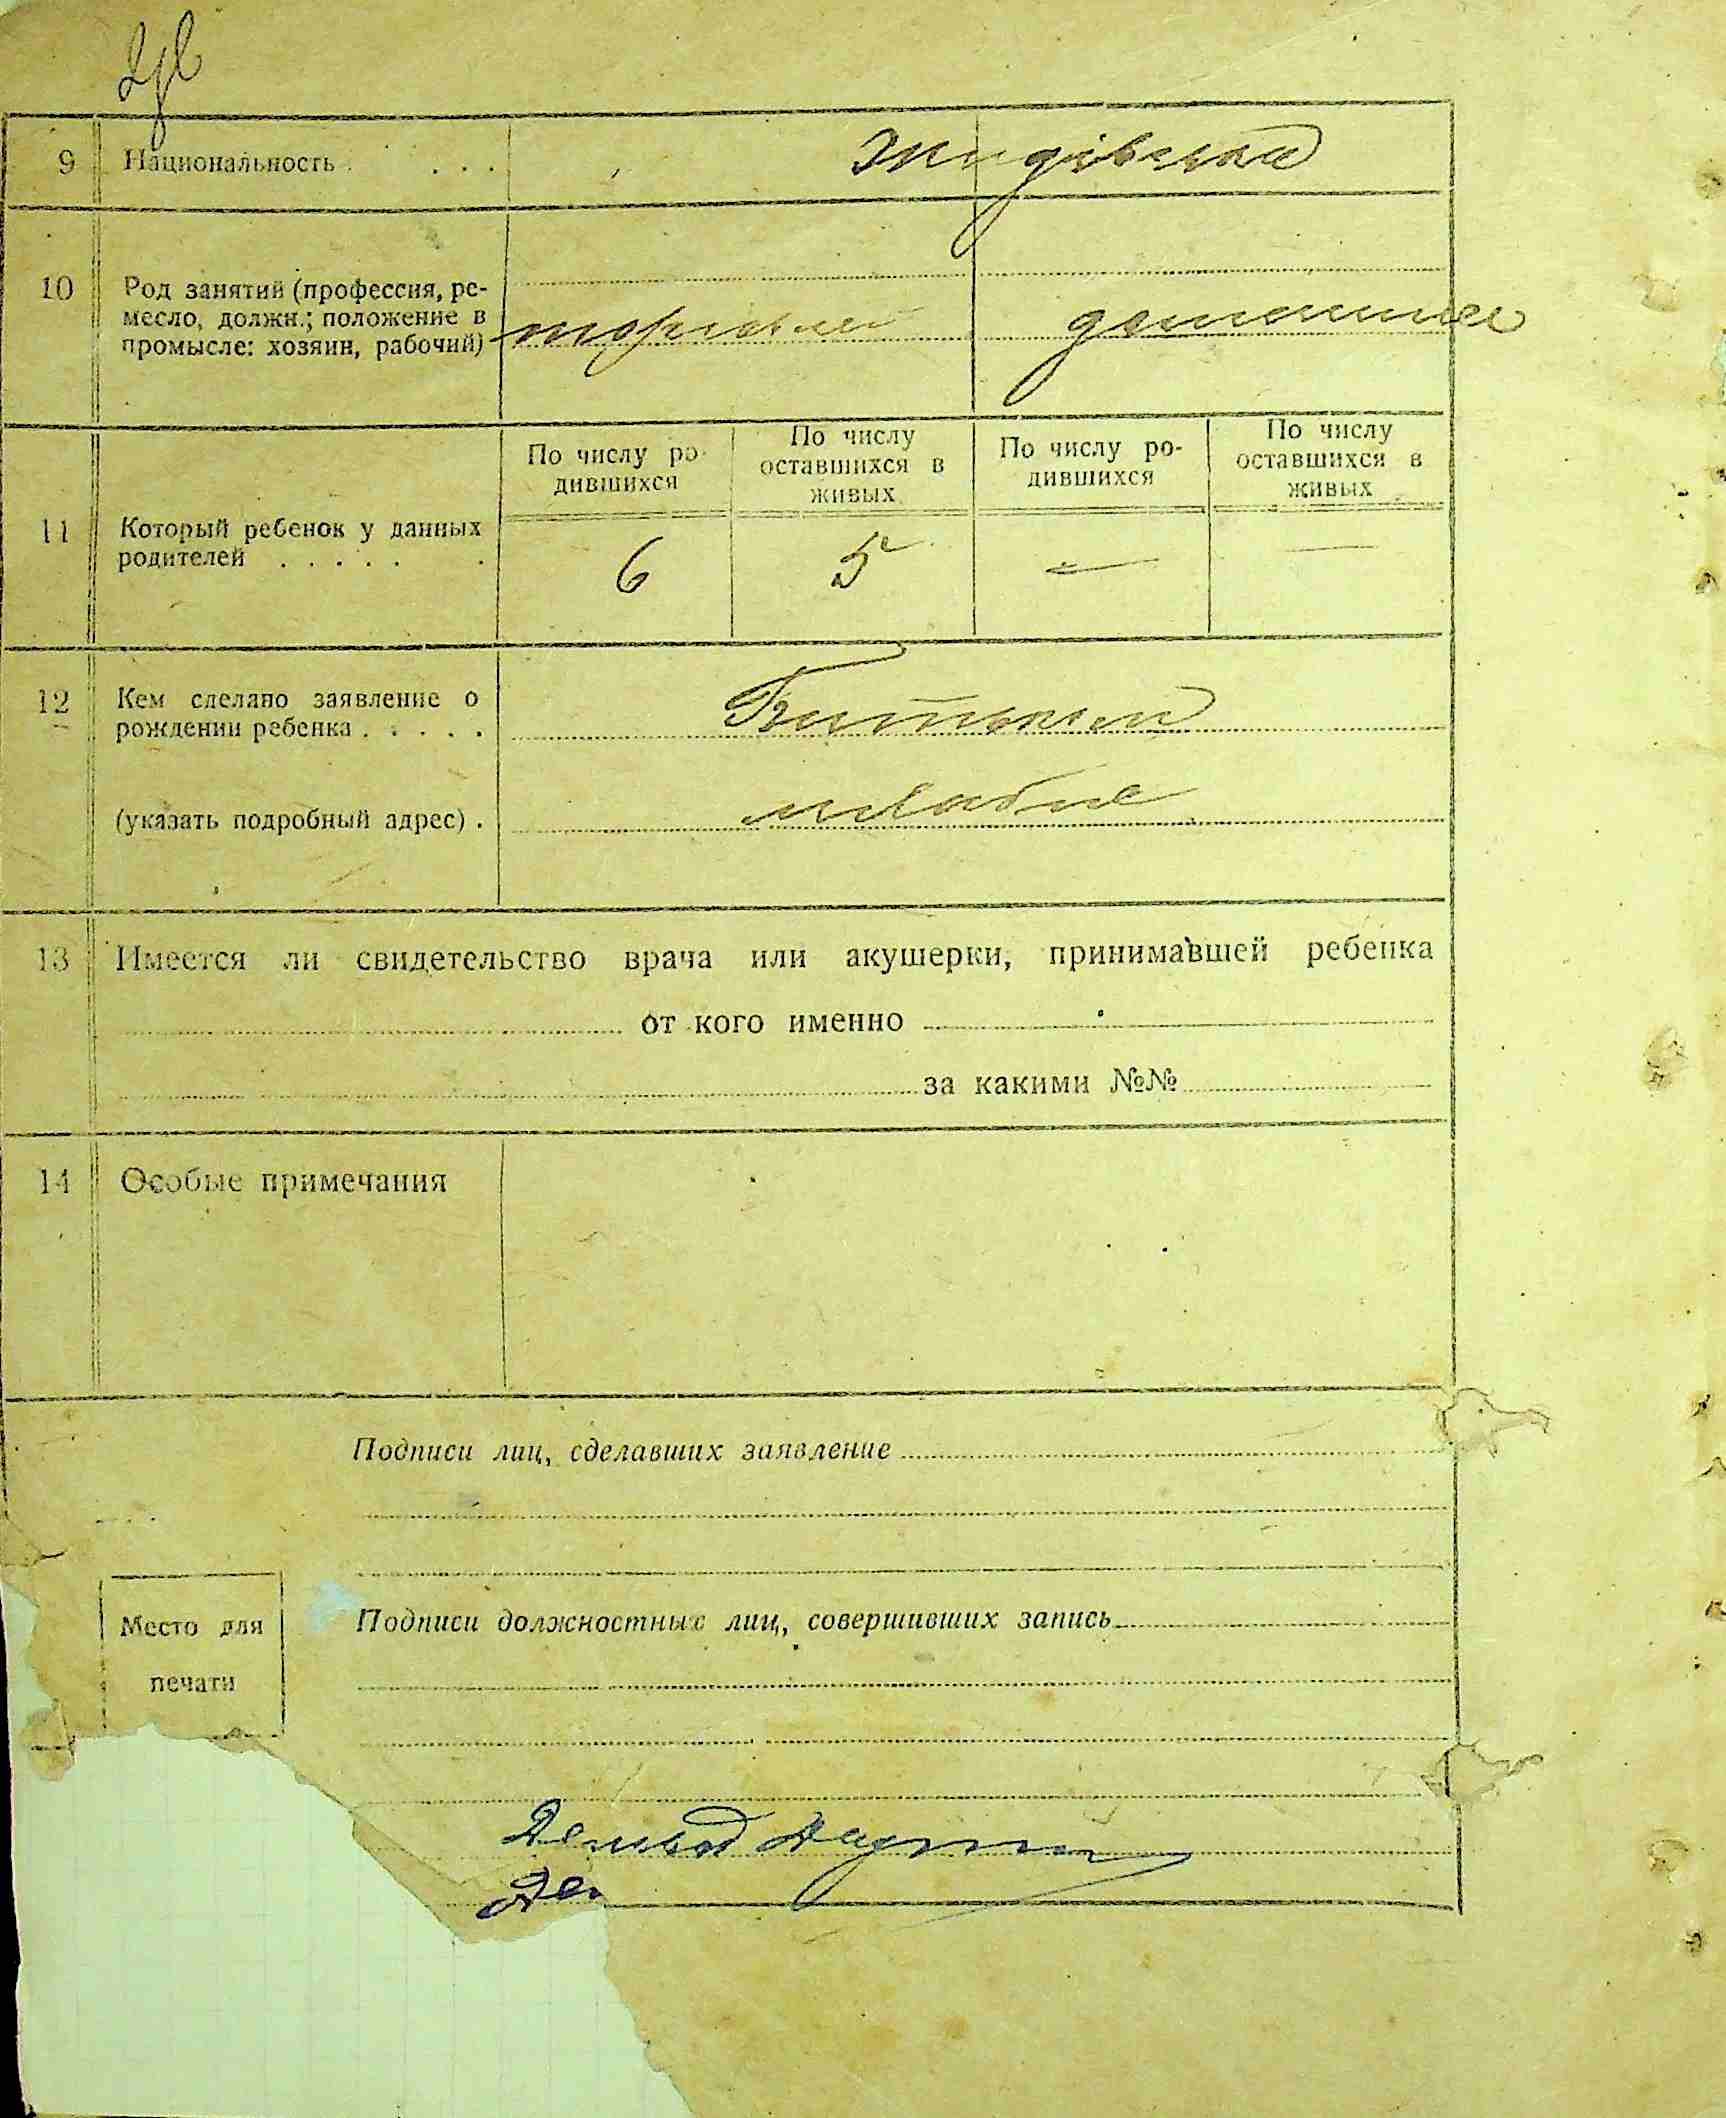 9 Национальность . . . . жидівська
10 Род занятий (профессия, ре-
месло, должн.; положение в
промысле: хозяин, рабочий)
торговлей домашнее
По числу ро-
дившихся
По числу
оставшихся в
живых
По числу ро-
дившихся
По числу
оставшихся в
живых
11 Который ребенок у данных
родителей . . . . . .
6 5 — —
12 Кем сделано заявление о
рождении ребенка . . . . . Батьком
(указать подробный адрес) .
13 Имеется ли свидетельство врача или акушерки, принимавшей ребенка
от кого именно
за какими №№
14 Особые примечания
Подписи лиц, сделавших заявление
Место для
печати
Подписи должностных лиц, совершивших запись